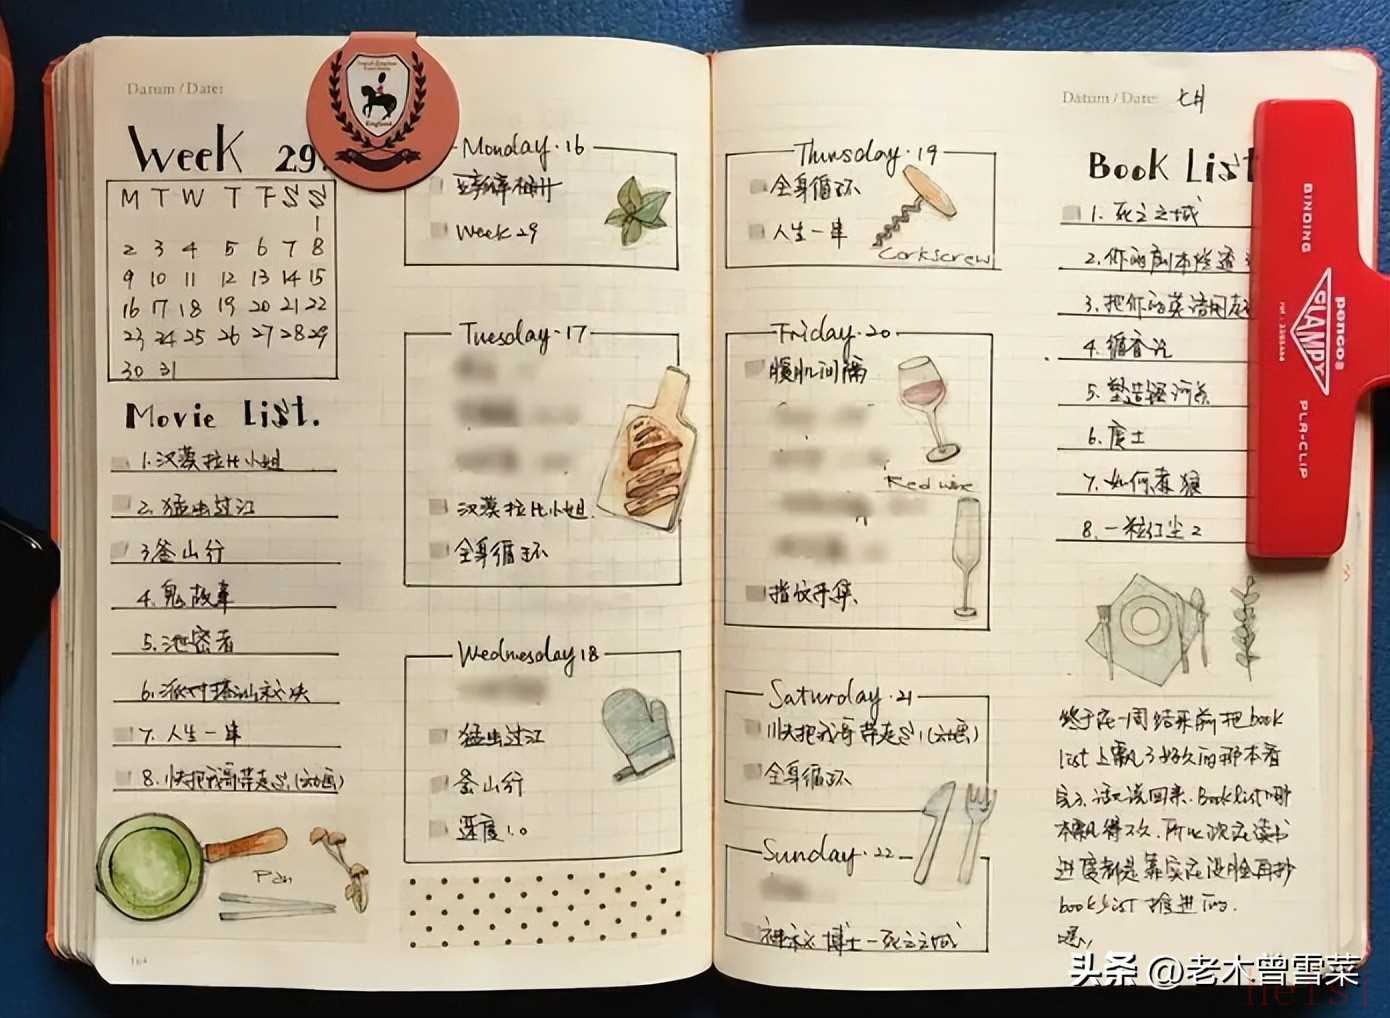 Datum / Date:
Week 29.
M T W T F S S
1
2 3 4 5 6 7 8
9 10 11 12 13 14 15
16 17 18 19 20 21 22
23 24 25 26 27 28 29
30 31
Movie List.
1. 汉漠拉比小姐
2. 猛虫过江
3 釜山行
4. 鬼故事
5. 泄密者
6.
7. 人生一串
8. 快把我哥带走 (动画)
Pan
Monday·16
Week 29
Tuesday·17
汉漠拉比小姐
全身循环
Wednesday 18
猛虫过江
釜山行
速度 1.0
Thursday·19
全身循环
人生一串
Corkscrew
Friday·20
腹肌间隔
Red wine
Saturday·21
快把我哥带走 (动画)
全身循环
Sunday·22
神秘博士-死亡之城
Datum / Date: 七月
Book List
1. 死亡之城
2. 你的剧本
3. 把你的英语用
4. 循香
5. 塑造银河系
6. 度士
7. 如何养狼
8. 一粒红尘 2
终于在一周结束前把book
list上飘了好久的那本看
完了.话又说回来.Booklist哪
本飘得不久.所以现在读书
进度都是靠实在没脸再抄
booklist 推进的.
嗯,
BINDING
penco®
CLAMPY
PLA-CLIP
头条 @老木曾雪菜